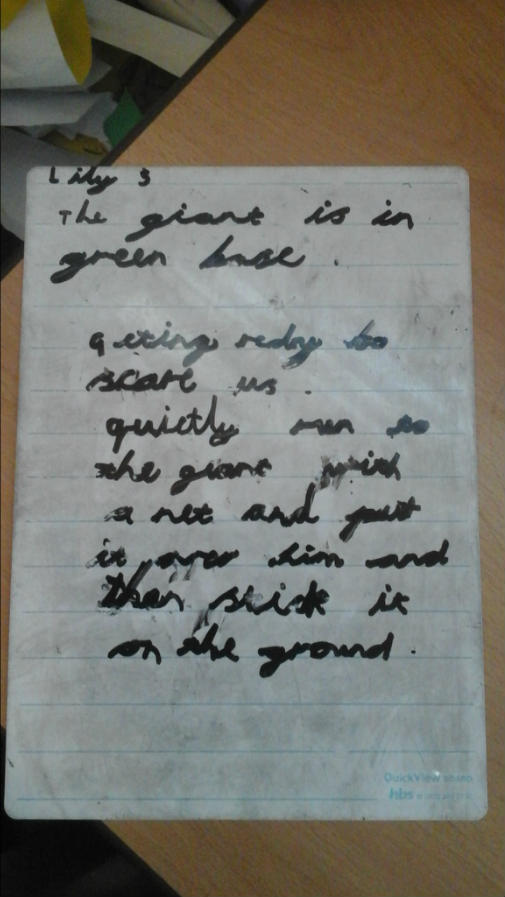 Lily S
The giant is in
green base .
geting redy to
scare us .
quietly run to
the giant with
a net and put
it over him and
then stick it
on the ground .
QuickView board
hbs